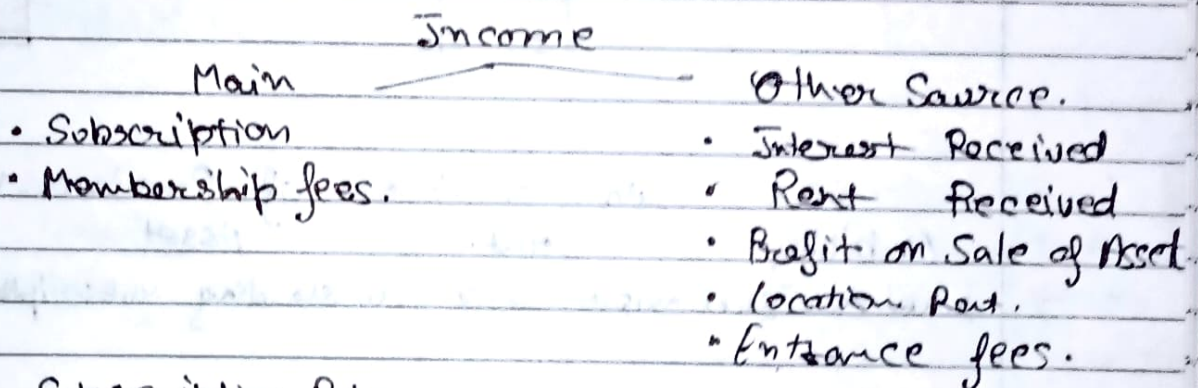 Income
Main
Other Source.
• Subscription
• Membership fees.
• Interest Received
• Rent Received
• Profit on Sale of Asset
• Location Rent.
• Entrance fees.